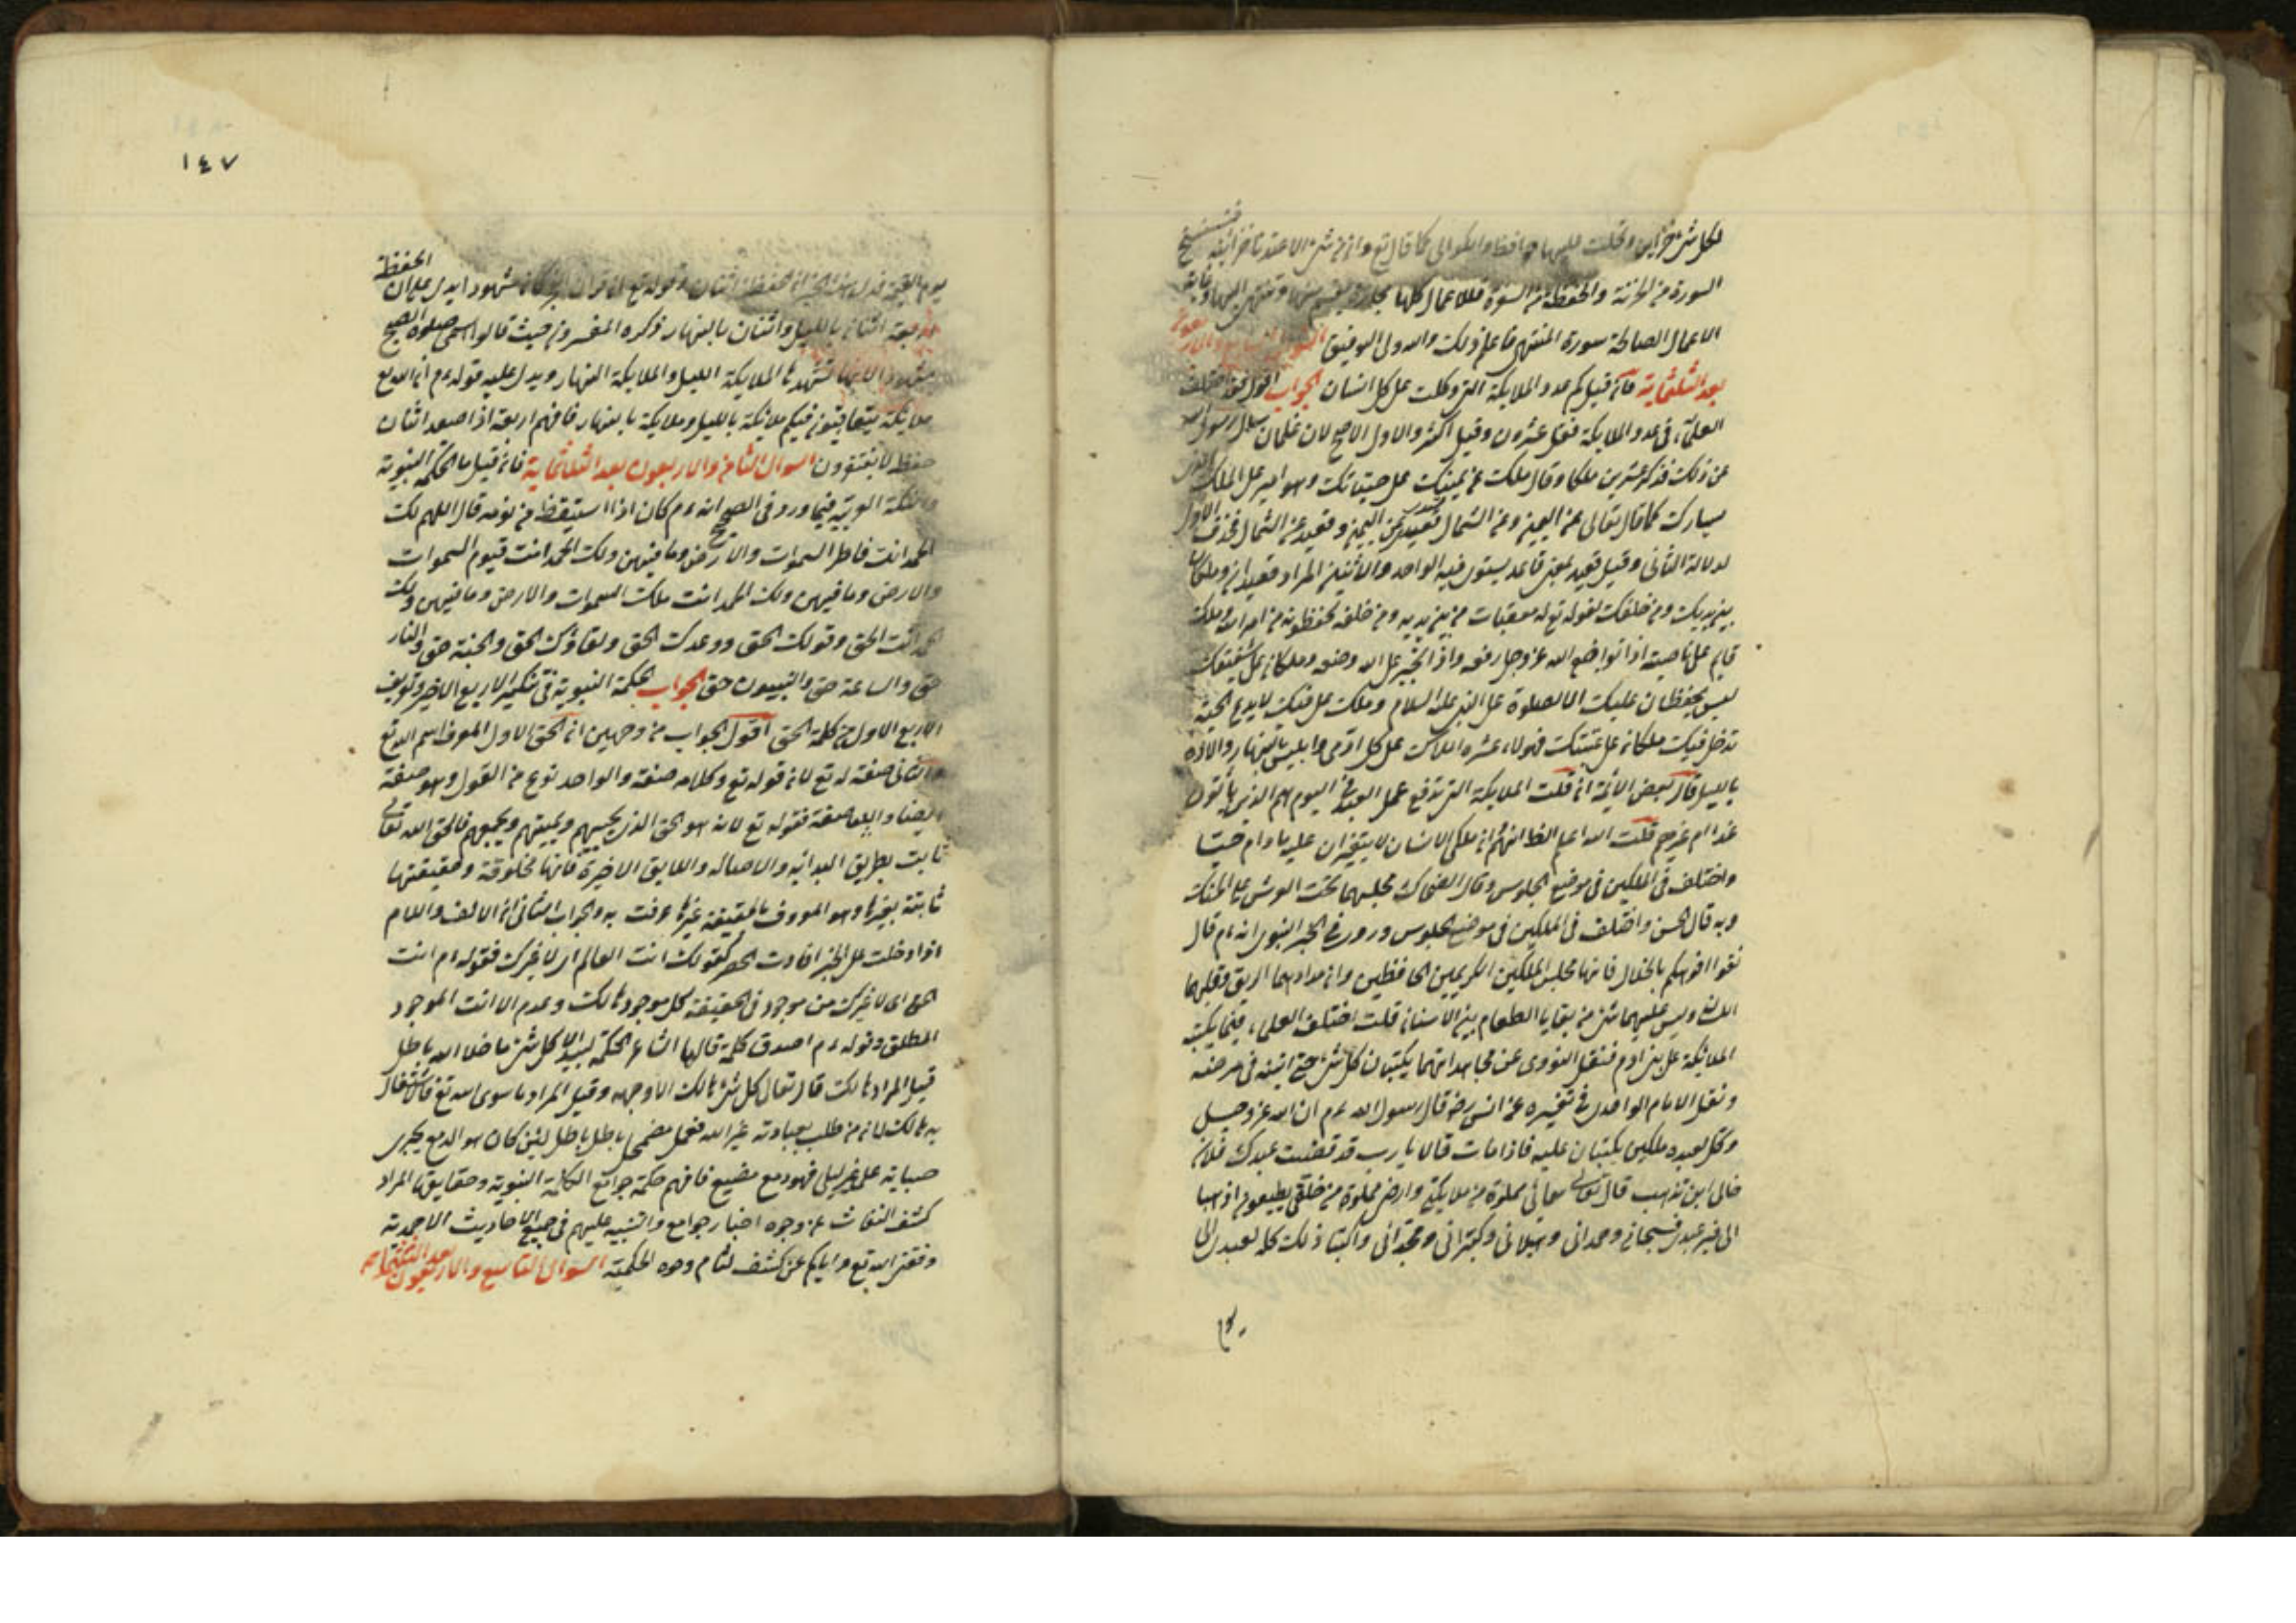 لكل شئ خزاين وكلت عليها حوافظ والكوالى كما قال تع وان من شئ الا عندنا خزائنه
السورة من الخزنة والحفظة من السفرة فللاعمال كلها
الاعمال الصالحة سورة المنتهى فاعلم ذلك والله ولى التوفيق السؤال السابع والاربعون
بعد الثلثماية فان قيل كم عدد الملايكة التى وكلت على كل انسان الجواب اقول قد اختلف
العلماء فى عدد الملايكة فقيل عشرون وقيل اكثر والاول الاصح لان عثمان سأل رسول الله
عن ذلك فذكر عشرين ملكا وقال ملك عن يمينك على حسناتك وهو امير على الملك الذى
يسارك كما قال تعالى عن اليمين وعن الشمال قعيد عن اليمين وقعيد عن الشمال فحذف الاول
لدلالة الثانى وقيل قعيد بمعنى قاعد يستوى فيه الواحد والاثنين المراد قعيدان وملكان
بين يديك ومن خلفك لقوله تع له معقبات من بين يديه ومن خلفه يحفظونه من امر الله وملك
قايم على ناصيته اذا تواضع لله عز وجل رفعه واذا تجبر على الله وضعه وملكان على شفتيك
ليس يحفظان عليك الا الصلوة على النبى عليه السلام وملك على فيك لا يدع الحية
تدخل فيك وملكان على عينيك فهولاء عشرة املاك على كل ادمى وابليس بالنهار واولاده
بالليل قال بعض الائمة ان قلت الملايكة التى ترفع عمل العبد فى اليوم هم الذين يأتون
غدا ام غيرهم قلت الله اعلم الظاهر انهم ان ملكى الانسان لا يتغيران عليه مادام حيا
واختلف فى الملكين فى موضع الجلوس وقال الضحاك مجلسهما تحت الشعر على الحنك
وبه قال الحسن واختلف فى الملكين فى موضع الجلوس وورد فى الخبر النبوى انه عم قال
نقوا افواهكم بالخلال فانها مجلس الملكين الكريمين الحافظين وان مدادهما الريق وقلمهما
اللسان وليس عليهما شئ من بقايا الطعام بين الاسنان قلت اختلف العلماء فيما يكتبه
الملائكة على بنى ادم فنقل الغزوى عن مجاهد انهما يكتبان كل شئ حتى انينه فى مرضه
ونقل الامام الواحدى فى تفسيره عن انس رضه قال رسول الله عم ان الله عز وجل
وكل لعبده ملكين يكتبان عليه فاذا مات قالا يارب قد قضيت عبدك فلان
فالى اين نذهب قال تعالى سمائى مملوة من ملايكتى وارضى مملوة من خلقى يطيعون اذهبا
الى قبر عبدى فسبحانى واحمدانى وهللانى وكبرانى ومجدانى واكتبا ذلك كله لعبدى الى
١٤٧
يوم القيمة فدل هذا الخبر ان الحفظة اثنان وقوله تع ان قران الفجر كان مشهودا يدل على ان الحفظة
اربعة اثنان بالليل واثنان بالنهار ذكره المفسرون حيث قالوا سمى صلوة الصبح
مشهودا لانها تشهدها الملايكة الليل والملايكة النهار ويدل عليه قوله عم ان لله تع
ملايكة يتعاقبون فيكم ملائكة بالليل وملايكة بالنهار فافهم اربعة اذا صعد اثنان
حفظ لا يفترون السؤال الثامن والاربعون بعد الثلثماية فان قيل ما الحكمة النبوية
والنكتة العربية فيما ورد فى الصحيح انه عم كان اذا استيقظ من نومه قال اللهم لك
الحمد انت فاطر السموات والارض وما فيهن ولك الحمد انت قيوم السموات
والارض وما فيهن ولك الحمد انت ملك السموات والارض وما فيهن ولك
الحمد انت الحق وقولك الحق ووعدك الحق ولقاؤك الحق والجنة حق والنار
حق والساعة حق والنبييون حق الجواب الحكمة النبوية فى تنكير الاربع الاخير وتعريف
الاربع الاول من كلمة الحق اقول الجواب من وجهين ان الحق الاول المعرف اسم الله تع
والثانى صفة له تع لان قوله تع وكلامه صفة والواحد نوع من القول وهو صفة
ايضا واللقا صفة فقوله تع لانه هو الحق الذى يحييهم ويميتهم ويجمعهم فالحق الله تعالى
ثابت بطريق البدائة والاصالة واللايق الاخيرة فانها مخلوقة وحقيقتها
ثابتة بغيرها وهو المعروف بالحقيقة غيرها عرفت به والجواب الثانى ان الالف واللام
اذا دخلت على الخبر افادت الحصر كقولك انت العالم اى لا غيرك فقوله عم انت
الحق اى لا غيرك من موجود فى الحقيقة كل موجود هالك وعدم الا انت الموجود
المطلق وقوله عم اصدق كلمة قالها الشاعر الحكمة لبيد الا كل شئ ما خلا الله باطل
قيل المراد هالك قال تعالى كل شئ هالك الا وجهه وقيل المراد ما سوى الله تع فالاشتغال
به هالك لان من طلب بعبادته غير الله فعمل مضمحل باطل باطل لئن كان هوالدمع يجرى
صبابة على غير ليلى فهو دمع مضيع فافهم حكمة جوامع الكلمة النبوية وحقايق المراد
كشف النقاب عن وجوه اخبار جوامع والتنبيه عليهم فى جميع الاحاديث الاحمدية
وفقنى الله تع واياكم عن كشف لثام وجوه الحكمية السؤال التاسع والاربعون بعد الثلثماية